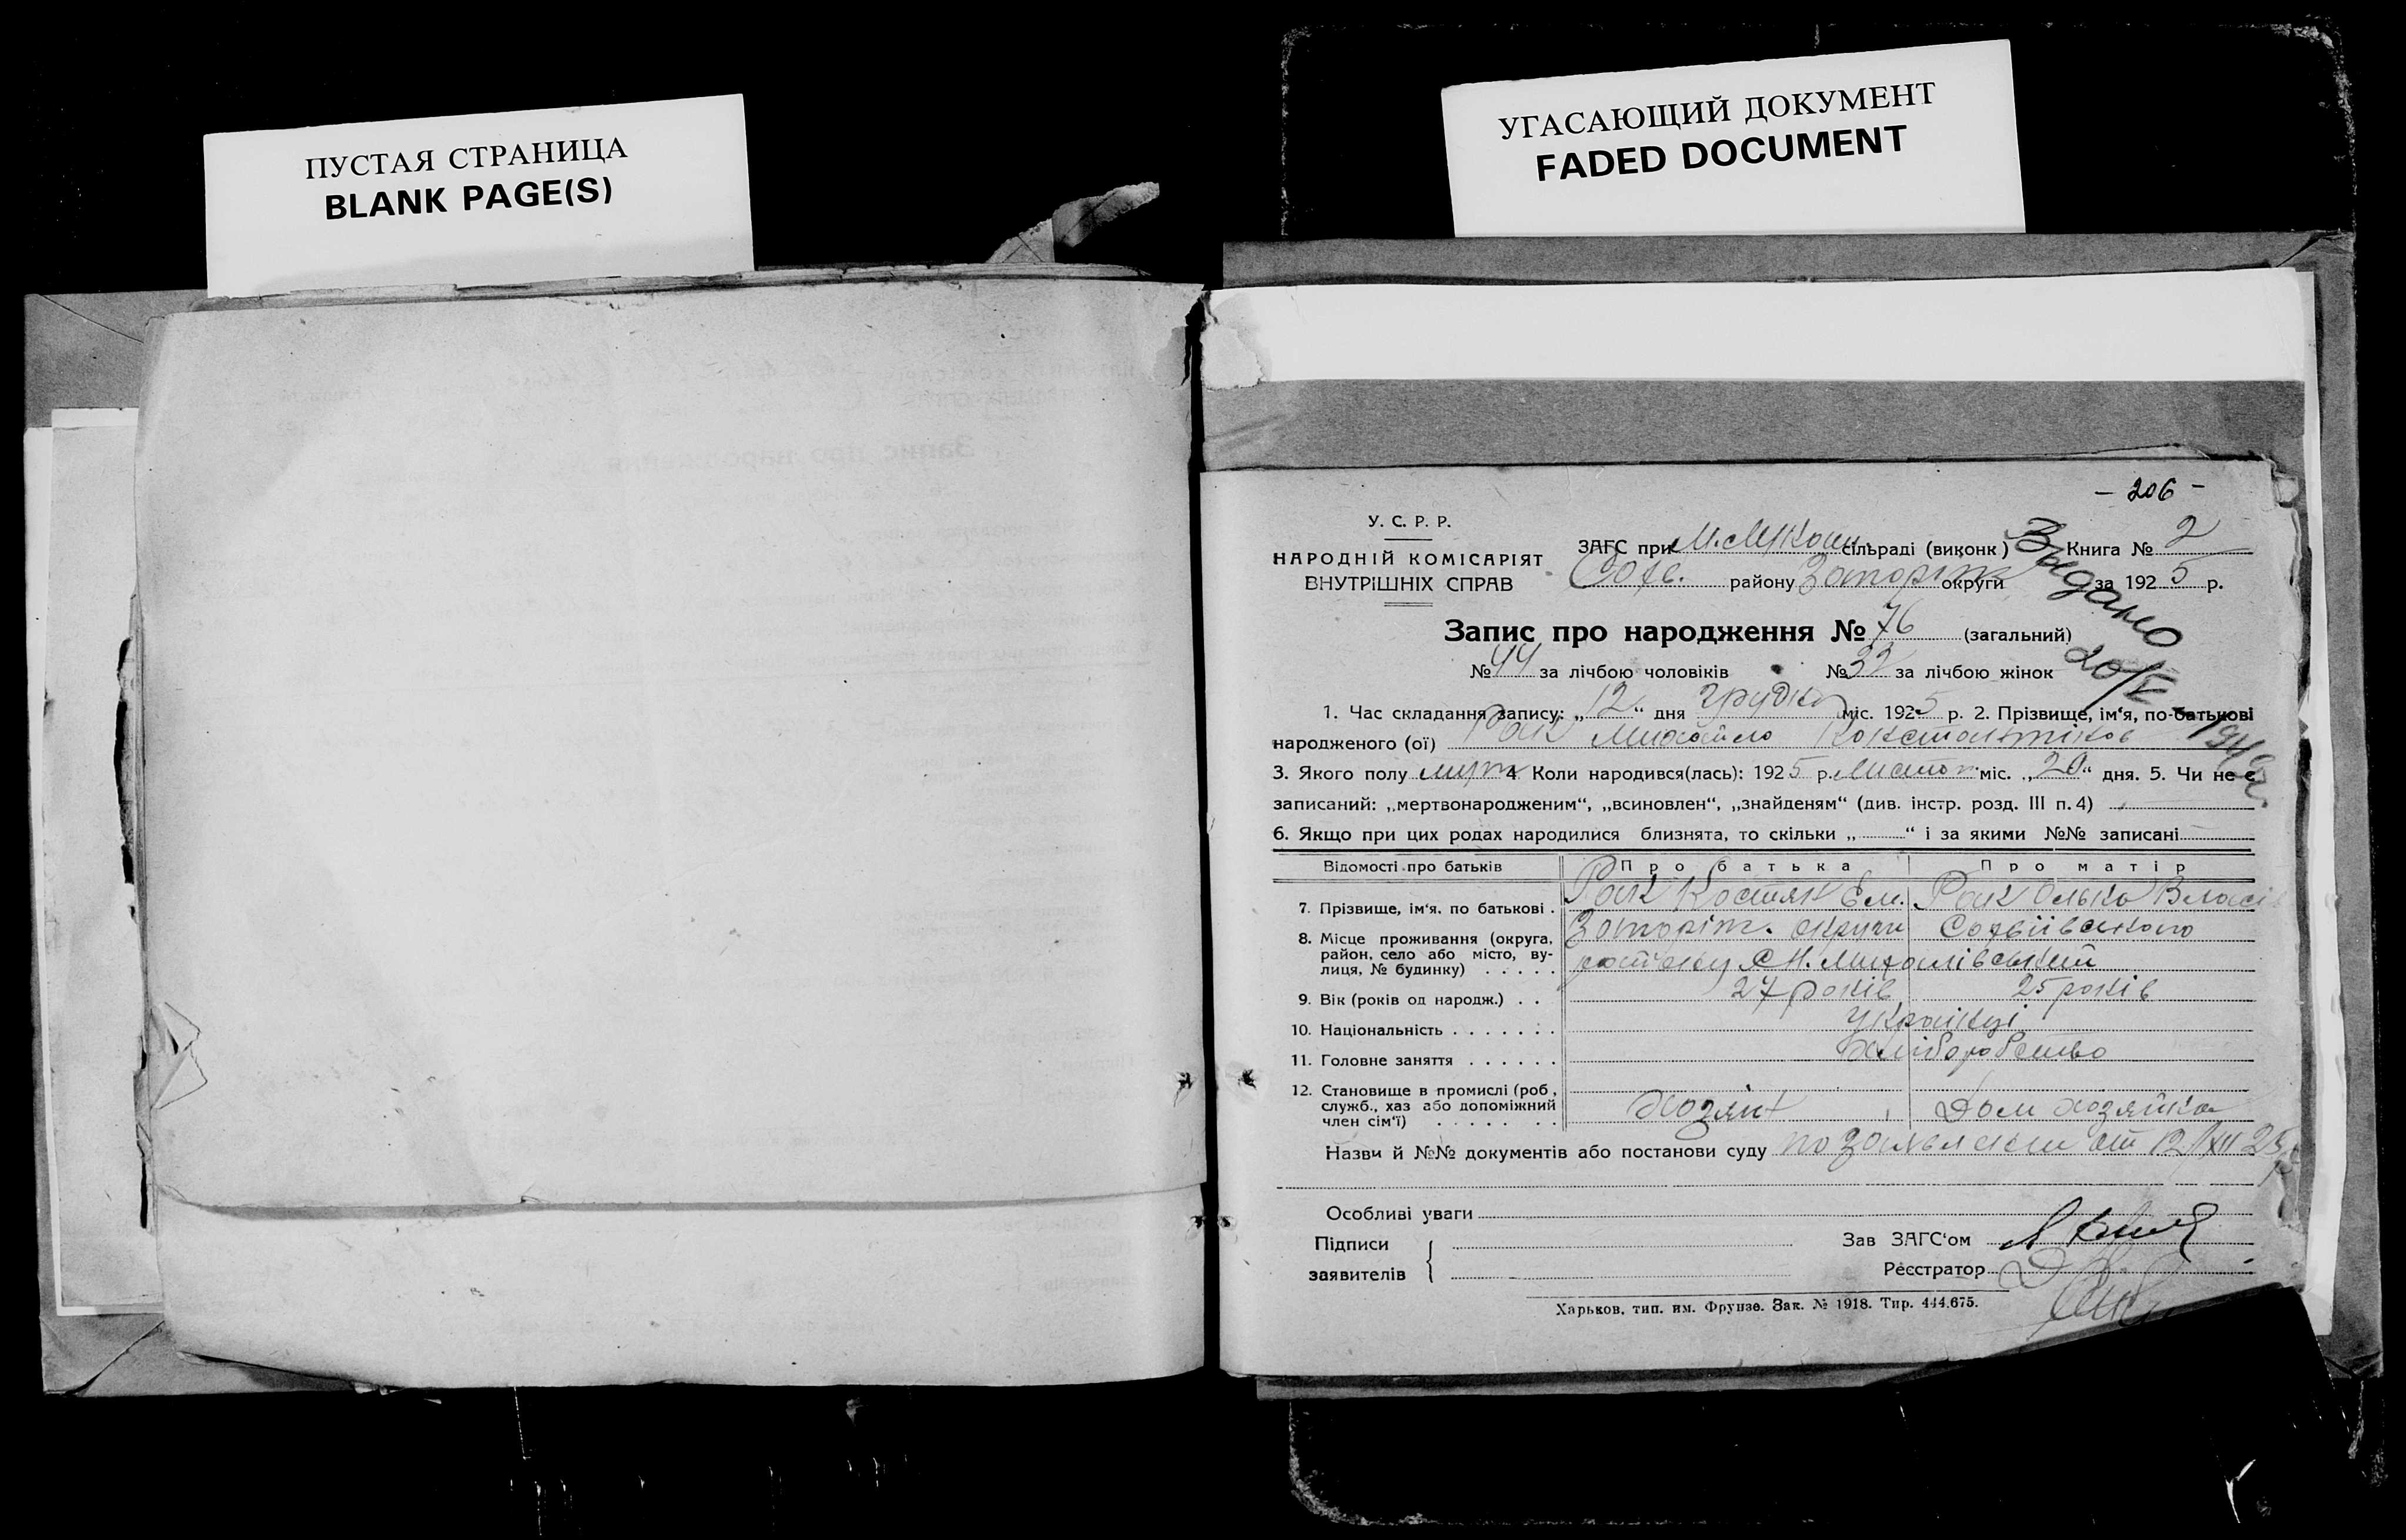 ПУСТАЯ СТРАНИЦА
BLANK PAGE(S)
УГАСАЮЩИЙ ДОКУМЕНТ
FADED DOCUMENT
- 206 -
У. С. Р. Р.
НАРОДНІЙ КОМІСАРІЯТ
ВНУТРІШНІХ СПРАВ
ЗАГС при сільраді (виконк) Книга № 2
Соф. району Запоріж округи за 1925 р.
Видано
20/V
Запис про народження № 76 (загальний)
№ 44 за лічбою чоловіків № 32 за лічбою жінок
1. Час складання запису: „12“ дня Грудня міс. 1925 р. 2. Прізвище, ім‘я, по-батькові
народженого (ої) Рак Михайло Константинов
3. Якого полу муж 4 Коли народився(лась): 1925 р. Листоп. міс. „20“ дня. 5. Чи не є
записаний: „мертвонародженим“, „всиновлен“, „знайденям“ (див. інстр. розд. III п. 4)
6. Якщо при цих родах народилися близнята, то скільки „ “ і за якими №№ записані
Відомості про батьків Про батька Про матір
7. Прізвище, ім‘я, по батькові . Рак Костян Ем. Рак Олька Власів
8. Місце проживання (округа, район, село або місто, вулиця, № будинку) . . . . . Запоріж. округи Софіївського
району С Н. Михолівський
9. Вік (років од народж.) . . 27 років 25 років
10. Національність . . . . . . . Українці
11. Головне заняття . . . . . . Хліборобство
12. Становище в промислі (роб, служб., хаз або допоміжний член сім‘ї) . . . . . . . Хозяїн Дом хозяйка
Назви й №№ документів або постанови суду по заявлении от 12/XII 25
Особливі уваги
Підписи
заявителів
Зав ЗАГС‘ом
Реєстратор
Харьков, тип. им. Фрунзе. Зак. № 1918. Тир. 444.675.